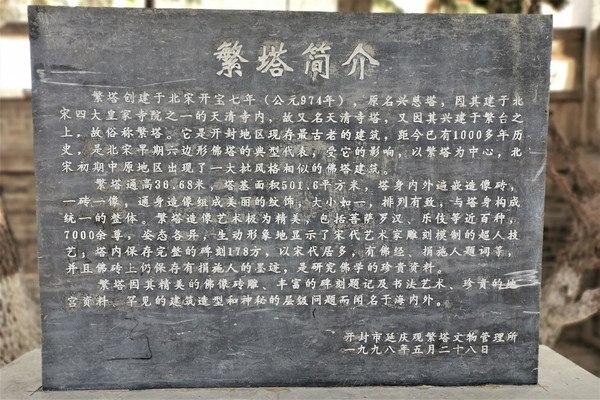 繁塔简介
繁塔创建于北宋开宝七年（公元974年），原名兴慈塔，因其建于北
宋四大皇家寺院之一的天清寺内，故又名天清寺塔，又因其兴建于繁台之
上，故俗称繁塔；它是开封地区现存最古老的建筑，距今已有1000多年历
史，是北宋早期六边形佛塔的典型代表，受它的影响，以繁塔为中心，北
宋初期中原地区出现了一大批风格相似的佛塔建筑。
繁塔通高36.68米，塔基面积501.6平方米，塔身内外遍嵌造像砖，
一砖一像，通身造像组成美丽的纹饰，大小如一，排列有致，与塔身构成
统一的整体。繁塔造像艺术极为精美，包括菩萨罗汉、乐伎等近百种，
7000余尊，姿态各异，生动形象地显示了宋代艺术家雕刻模制的超人技
艺；塔内保存完整的碑刻178方，以宋代居多，有佛经、捐施人题词等，
并且佛砖上仍保存有捐施人的墨迹，是研究佛学的珍贵资料。
繁塔因其精美的佛像砖雕、丰富的碑刻题记及书法艺术、珍贵的地
宫资料、罕见的建筑造型和神秘的层级问题而闻名于海内外。
开封市延庆观繁塔文物管理所
一九九八年五月二十八日